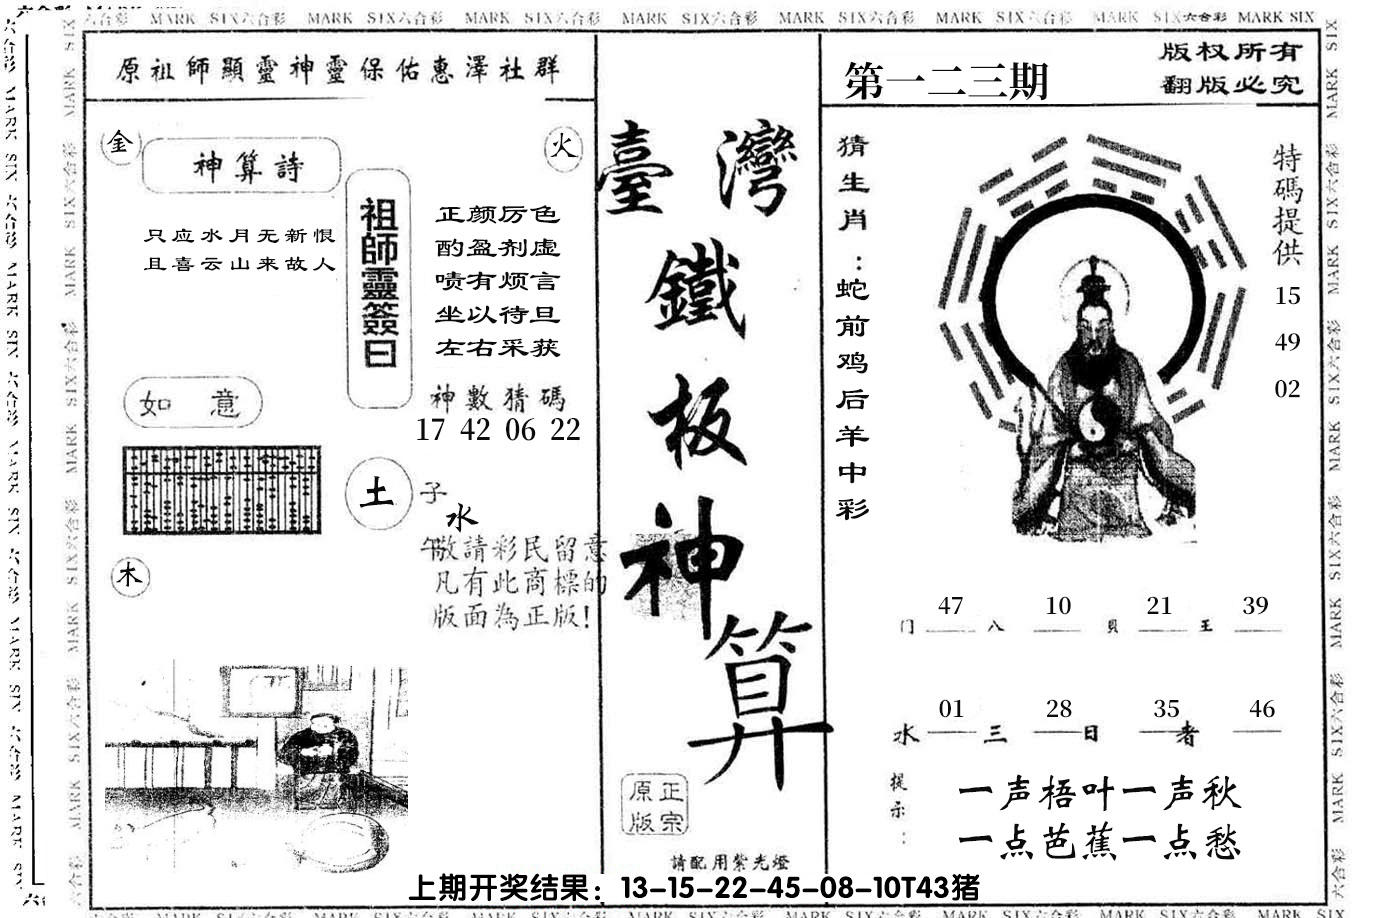 六合彩 MARK SIX六合彩 MARK SIX六合彩 MARK SIX六合彩 MARK SIX六合彩 MARK SIX六合彩 MARK SIX六合彩 MARK SIX六合彩 MARK SIX
原祖師顯靈神靈保佑惠澤社群
金
火
神算詩
只应水月无新恨
且喜云山来故人
祖師靈簽曰
正颜厉色
酌盈剂虚
啧有烦言
坐以待旦
左右采获
神數猜碼
17 42 06 22
如 意
土
子
水
午
木
敬請彩民留意
凡有此商標的
版面為正版!
臺灣
鐵
板
神
算
正宗
原版
請配用紫光燈
第一二三期
版权所有
翻版必究
猜生肖:蛇前鸡后羊中彩
特碼提供
15
49
02
47 10 21 39
门 八 貝 王
01 28 35 46
水 三 日 者
提示:
一声梧叶一声秋
一点芭蕉一点愁
上期开奖结果：13-15-22-45-08-10T43猪